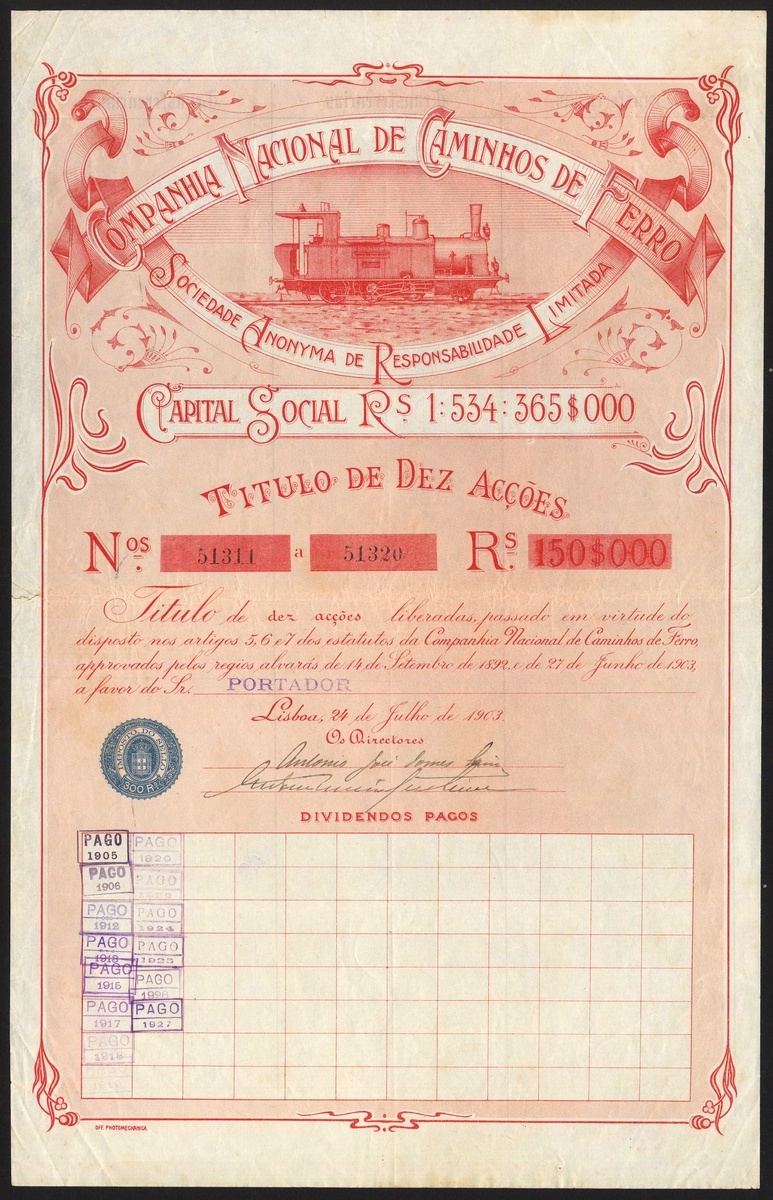 COMPANHIA NACIONAL DE CAMINHOS DE FERRO
SOCIEDADE ANONYMA DE RESPONSABILIDADE LIMITADA
CAPITAL SOCIAL RS. 1:534:365$000
TITULO DE DEZ ACÇÕES
Nos. 51311 a 51320 Rs. 150$000
Titulo de dez acções liberadas, passado em virtude do
disposto nos artigos 5, 6 e 7 dos estatutos da Companhia Nacional de Caminhos de Ferro,
approvados pelos regios alvarás de 14 de Setembro de 1892, e de 27 de Junho de 1903,
a favor do Sr. PORTADOR
Lisboa, 24 de Julho de 1903.
Os Directores
IMPOSTO DO SELLO
300 Rs
Antonio José Gomes
DIVIDENDOS PAGOS
PAGO
1905
PAGO
1920
PAGO
1906
PAGO
PAGO
1912
PAGO
1924
PAGO
PAGO
1925
PAGO
1915
PAGO
1926
PAGO
1917
PAGO
1927
PAGO
OFF. PHOTOMECHANICA.